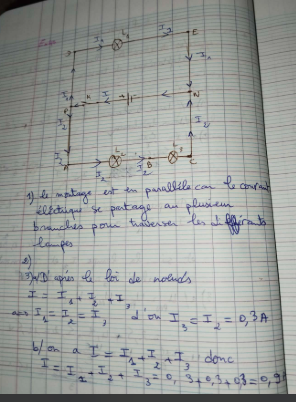 I₁ L₁ I₁ E
I₁
I₁ K I N
P
I₂ I₂
L₂ B C
I₂ I₂
1) Le montage est en parallèle car le courant
électrique se partage au plusieur
branches pour traverser les différents
lampes
2)
3) a/ D'après le loi de nœuds
I = I₁ + I₂ + I₃
⟺ I₁ = I₂ = I, d'où I₃ = I₂ = 0,3A
b/ on a I = I₁ + I₂ + I₃ donc
I = I₂ + I₂ + I₃ = 0,3 + 0,3 + 03 = 0,9